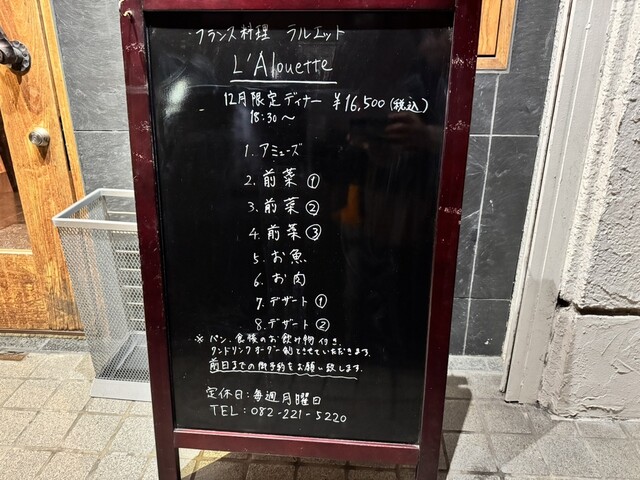 フランス料理 ラルエット
L'Alouette
12月限定ディナー ¥16,500(税込)
18:30〜
1. アミューズ
2. 前菜 ①
3. 前菜 ②
4. 前菜 ③
5. お魚
6. お肉
7. デザート ①
8. デザート ②
※ パン、食後のお飲み物付き。
ワンドリンクオーダー制とさせていただきます。
前日までの御予約をお願い致します。
定休日:毎週月曜日
TEL:082-221-5220